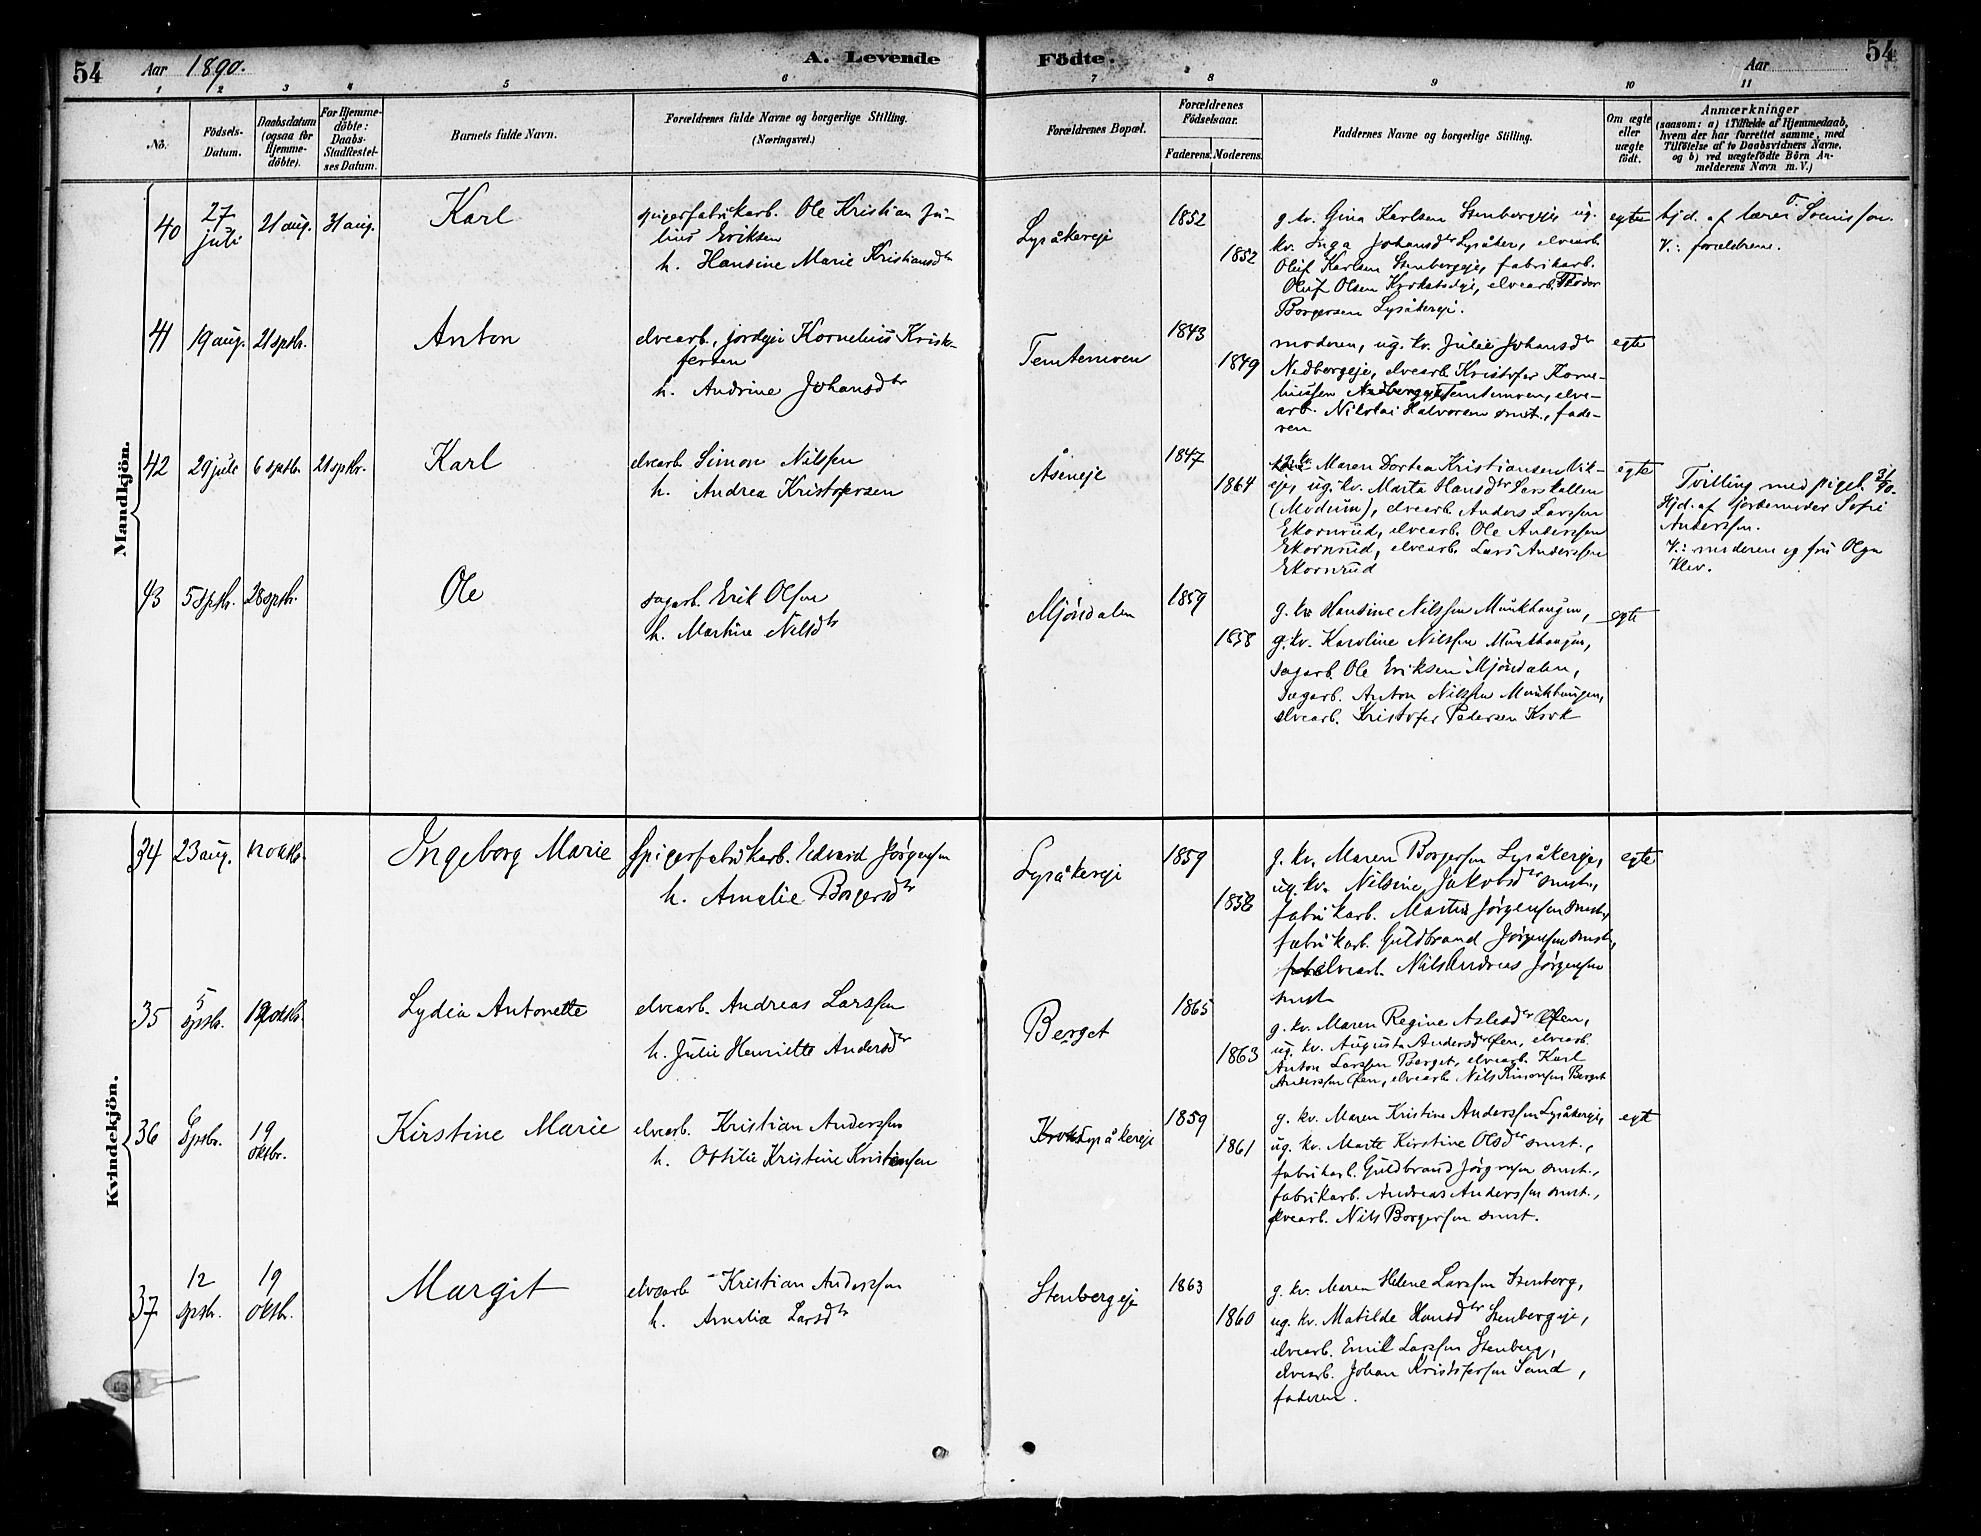 54
Aar 1890.
A. Levende Födte.
Aar
54
1 2 3 4 5 6 7 8 9 10 11
No.
Födsels-Datum.
Daabsdatum (ogsaa for Hjemme-döbte).
For Hjemme-döbte: Daabs-Stadfæstel-ses Datum.
Barnets fulde Navn.
Forældrenes fulde Navne og borgerlige Stilling.
(Næringsvei.)
Forældrenes Bopæl.
Forældrenes Födselsaar.
Faderens. Moderens.
Faddernes Navne og borgerlige Stilling.
Om ægte eller uægte födt.
Anmærkninger
(saasom: a) i Tilfælde af Hjemmedaab,
hvem der har forrettet samme, med
Tilföielse af to Daabsvidners Navne,
og b) ved uægtefödte Börn An-
melderens Navn m. V.)
Mandkjön.
40 27 juli 21 aug. 31 aug. Karl
spigerfabrikarb. Ole Kristian Ju-
lius Eriksen
h. Hansine Marie Kristiansdtr
Lysåkereje 1852 1852
g. kv. Gina Karlsen Stenbergeje, ug.
kv. Inga Johansdtr Lysåker, elvearb.
Oluf Karlsen Stenbergeje, fabrikarb.
Oluf Olsen, elvearb. Teodor
Borgersen Lysåkereje.
egte
hjd. af lærer
V.: forældrene.
41 19 aug. 21 sptbr. Anton
elvearb., jordejer Kornelius Kristo-
fersen
h. Andrine Johansdtr
Temtemoen 1843 1849
moderen, ug. kv. Julie Johansdtr
Nedbergeje, elvearb. Kristofer Korne-
liussen Temtemoen, elve-
arb. Nikolai Halvorsen smst., fade-
ren
egte
42 29 juli 6 sptbr. 21 sptbr. Karl
elvearb. Simon Nilssen
h. Andrea Kristofersen
Åseneje 1847 1864
g. kv. Maren Dortea Kristiansen Vik-
eje, ug. kv. Marta Hansdtr
(Modum), elvearb. Anders Larssen
Ekornrud, elvearb. Ole Anderssen
Ekornrud, elvearb. Lars Anderssen
Ekornrud
egte
Tvilling med pige
Hjd. af jordemoder Sofie
Anderssen.
V.: moderen og fru Olga
Klev.
43 5 sptbr. 28 sptbr. Ole
sagarb. Erik Olsen
h. Martine Nilsdtr
Mjöndalen 1859 1858
g. kv. Hansine Nilssen Munkhaugen,
g. kv. Karoline Nilssen Munkhaugen,
sagarb. Ole Eriksen Mjöndalen,
sagarb. Anton Nilssen Munkhaugen,
elvearb. Kristofer Pedersen Krok
egte
Kvindekjön.
34 23 aug. 12 oktbr. Ingeborg Marie
spigerfabrikarb. Edvard Jörgensen
h. Amalie Borgersdtr
Lysåkereje 1859 1858
g. kv. Maren Borgersen Lysåkereje,
ug. kv. Nilsine Jakobsdtr smst.,
fabrikarb. Martin Jörgensen smst.,
fabrikarb. Guldbrand Jörgensen smst.,
elvearb. Nils Andreas Jörgensen
smst.
egte
35 5 sptbr. 19 oktbr. Lydia Antonette
elvearb. Andreas Larssen
h. Julie Henriette Andersdtr
Berget 1865 1863
g. kv. Maren Regine Aslesdtr Öen,
ug. kv. Augusta Andersdtr Öen, elvearb.
Anton Larssen Berget, elvearb. Karl
Anderssen Öen, elvearb. Nils Simonsen Berget
36 sptbr. 19 oktbr. Kirstine Marie
elvearb. Kristian Anderssen
h. Ottilie Kristine Kristensen
Lysåkereje 1859 1861
g. kv. Maren Kristine Anderssen Lysåkereje,
ug. kv. Marte Kirstine Olsdtr smst.,
fabrikarb. Guldbrand Jörgensen smst.,
fabrikarb. Andreas Anderssen smst.,
elvearb. Nils Borgersen smst.
egte
37 12 sptbr. 19 oktbr. Margit
elvearb. Kristian Anderssen
h. Amalia Larsdtr
Stenbergeje 1863 1860
g. kv. Maren Helene Larssen Stenberg,
ug. kv. Matilde Hansdtr Stenbergeje,
elvearb. Emil Larssen Stenberg,
elvearb. Johan Kristofersen Sand,
faderen.